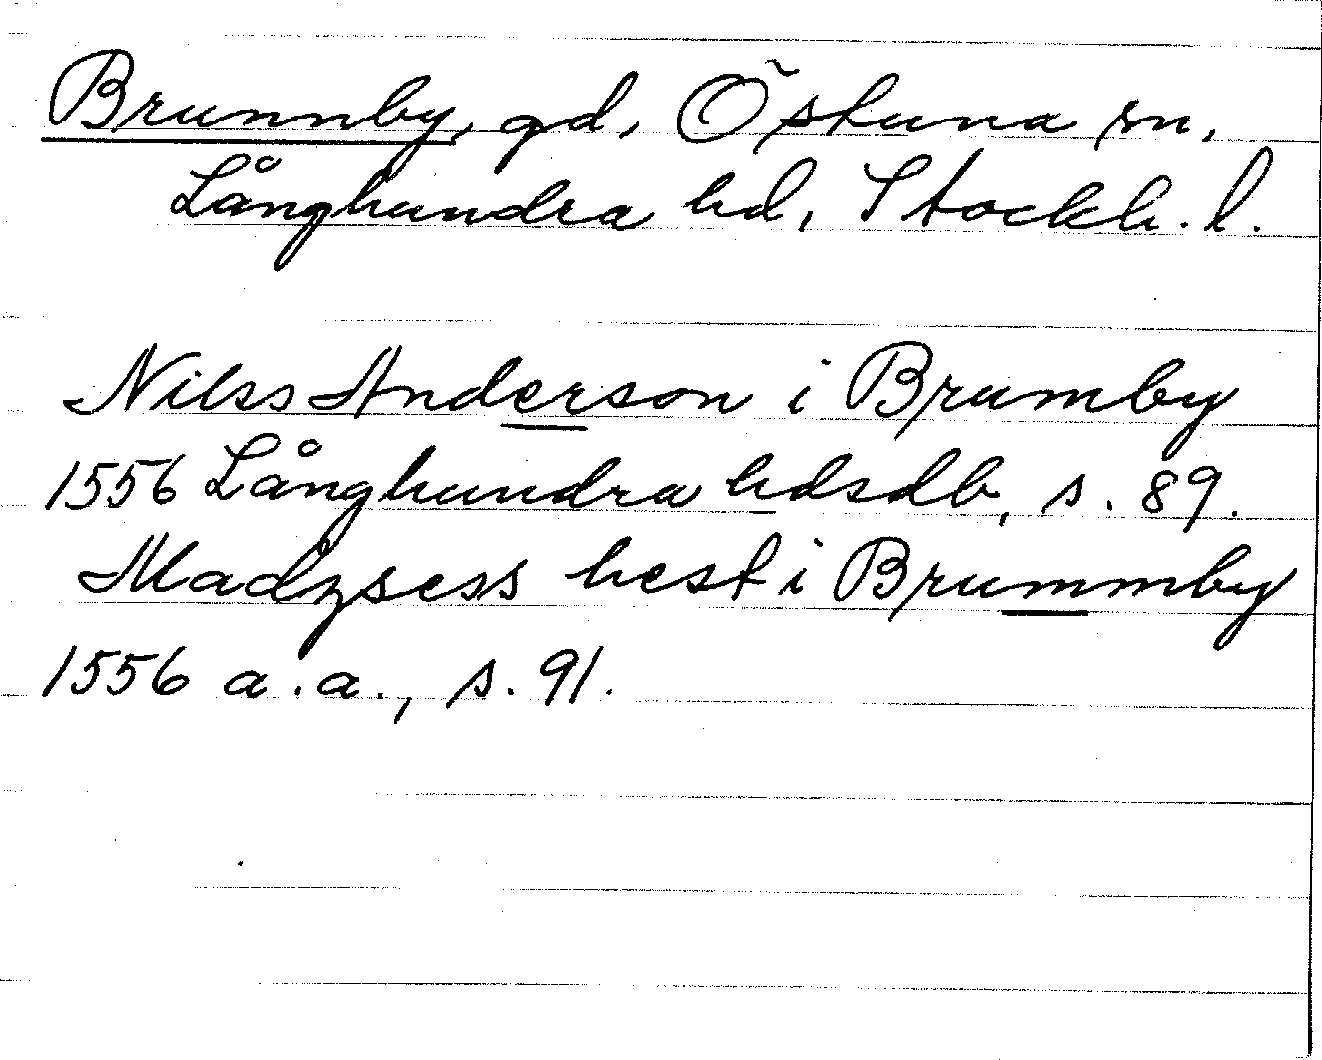 Brunnby, gd, Östuna sn,
Långhundra hd, Stockh. l.
Nilss Anderson i Brumby
1556 Långhundra hdsdb, s. 89.
Madzsess hest i Brummby
1556 a.a., s. 91.